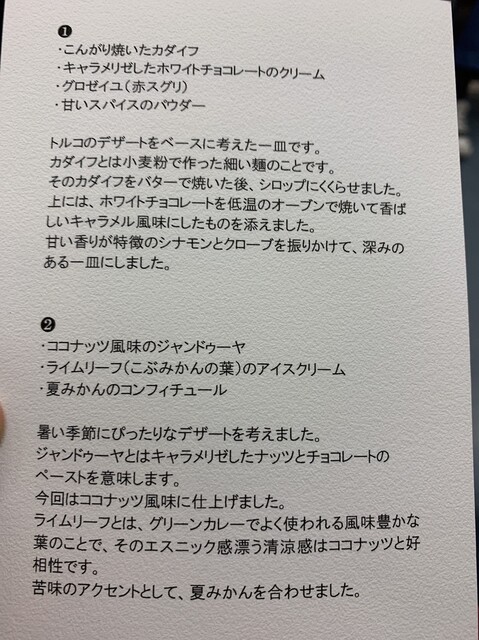 ❶
・こんがり焼いたカダイフ
・キャラメリゼしたホワイトチョコレートのクリーム
・グロゼイユ(赤スグリ)
・甘いスパイスのパウダー
トルコのデザートをベースに考えた一皿です。
カダイフとは小麦粉で作った細い麺のことです。
そのカダイフをバターで焼いた後、シロップにくくらせました。
上には、ホワイトチョコレートを低温のオーブンで焼いて香ば
しいキャラメル風味にしたものを添えました。
甘い香りが特徴のシナモンとクローブを振りかけて、深みの
ある一皿にしました。
❷
・ココナッツ風味のジャンドゥーヤ
・ライムリーフ(こぶみかんの葉)のアイスクリーム
・夏みかんのコンフィチュール
暑い季節にぴったりなデザートを考えました。
ジャンドゥーヤとはキャラメリゼしたナッツとチョコレートの
ペーストを意味します。
今回はココナッツ風味に仕上げました。
ライムリーフとは、グリーンカレーでよく使われる風味豊かな
葉のことで、そのエスニック感漂う清涼感はココナッツと好
相性です。
苦味のアクセントとして、夏みかんを合わせました。